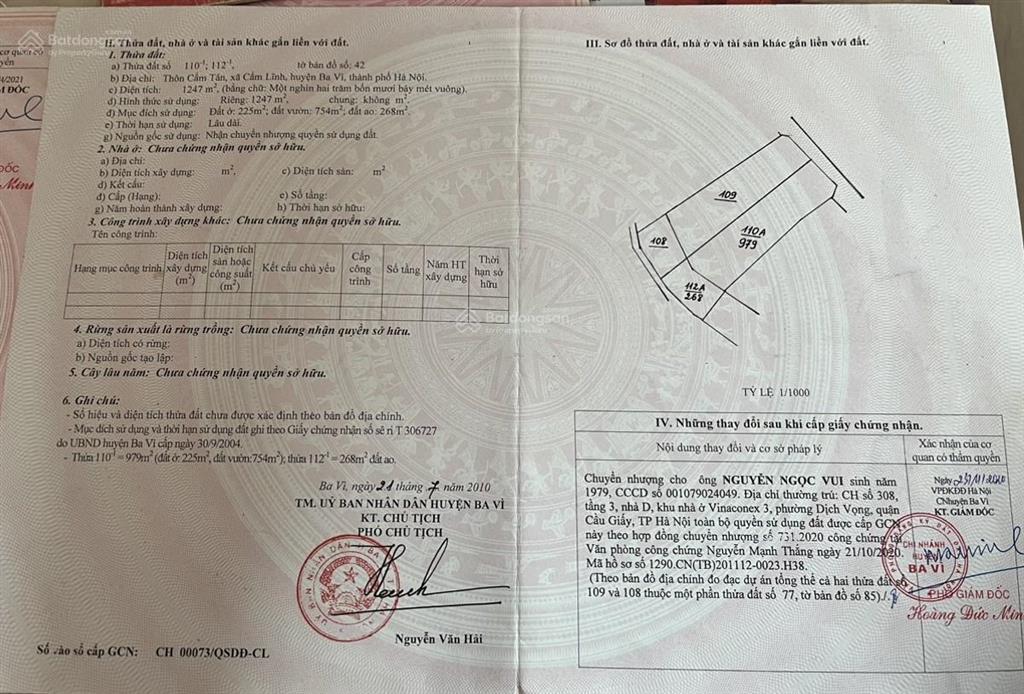 Batdongsan
cơ quan có
yền
4/2021
M ĐỐC
ĐỐC
Minh
II. Thửa đất, nhà ở và tài sản khác gắn liền với đất.
1. Thửa đất:
a) Thửa đất số 110⁻¹; 112⁻¹, tờ bản đồ số: 42
b) Địa chỉ: Thôn Cẩm Tân, xã Cẩm Lĩnh, huyện Ba Vì, thành phố Hà Nội.
c) Diện tích: 1247 m², (bằng chữ: Một nghìn hai trăm bốn mươi bảy mét vuông).
d) Hình thức sử dụng: Riêng: 1247 m², chung: không m².
đ) Mục đích sử dụng: Đất ở: 225m²; đất vườn: 754m²; đất ao: 268m².
e) Thời hạn sử dụng: Lâu dài.
g) Nguồn gốc sử dụng: Nhận chuyển nhượng quyền sử dụng đất.
2. Nhà ở: Chưa chứng nhận quyền sở hữu.
a) Địa chỉ:
b) Diện tích xây dựng: m², c) Diện tích sàn: m²
d) Kết cấu:
đ) Cấp (Hạng): e) Số tầng:
g) Năm hoàn thành xây dựng: h) Thời hạn sở hữu:
3. Công trình xây dựng khác: Chưa chứng nhận quyền sở hữu.
Tên công trình:
Hạng mục công trình
Diện tích xây dựng (m²)
Diện tích sàn hoặc công suất (m²)
Kết cấu chủ yếu
Cấp công trình
Số tầng
Năm HT xây dựng
Thời hạn sở hữu
4. Rừng sản xuất là rừng trồng: Chưa chứng nhận quyền sở hữu.
a) Diện tích có rừng:
b) Nguồn gốc tạo lập:
5. Cây lâu năm: Chưa chứng nhận quyền sở hữu.
6. Ghi chú:
- Số hiệu và diện tích thửa đất chưa được xác định theo bản đồ địa chính.
- Mục đích sử dụng và thời hạn sử dụng đất ghi theo Giấy chứng nhận số sê ri T 306727
do UBND huyện Ba Vì cấp ngày 30/9/2004.
- Thửa 110⁻¹ = 979m² (đất ở: 225m², đất vườn:754m²); thửa 112⁻¹ = 268m² đất ao.
Ba Vì, ngày 21 tháng 7 năm 2010
TM. UỶ BAN NHÂN DÂN HUYỆN BA VÌ
KT. CHỦ TỊCH
PHÓ CHỦ TỊCH
Nguyễn Văn Hải
Số vào sổ cấp GCN: CH 00073/QSDĐ-CL
III. Sơ đồ thửa đất, nhà ở và tài sản khác gắn liền với đất.
109
108
110A
979
112A
268
Batdongsan
TỶ LỆ 1/1000
IV. Những thay đổi sau khi cấp giấy chứng nhận.
Nội dung thay đổi và cơ sở pháp lý
Xác nhận của cơ
quan có thẩm quyền
Chuyển nhượng cho ông NGUYỄN NGỌC VUI sinh năm
1979, CCCD số 001079024049. Địa chỉ thường trú: CH số 308,
tầng 3, nhà D, khu nhà ở Vinaconex 3, phường Dịch Vọng, quận
Cầu Giấy, TP Hà Nội toàn bộ quyền sử dụng đất được cấp GCN
này theo hợp đồng chuyển nhượng số 731.2020 công chứng tại
Văn phòng công chứng Nguyễn Mạnh Thắng ngày 21/10/2020.
Mã hồ sơ số 1290.CN(TB)201112-0023.H38.
(Theo bản đồ địa chính đo đạc dự án tổng thể cả hai thửa đất số
109 và 108 thuộc một phần thửa đất số 77, tờ bản đồ số 85)./.
Ngày
VPĐKĐĐ Hà Nội
CNhuyện Ba Vì
KT. GIÁM ĐỐC
CHI NHÁNH
HUYỆN
BA VÌ
PHÓ GIÁM ĐỐC
Hoàng Đức Min